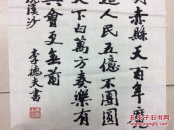 赤縣天百年魔
人民五億不團圓
天下白萬方奏樂有
興會更無前
浣溪沙
李德夫書